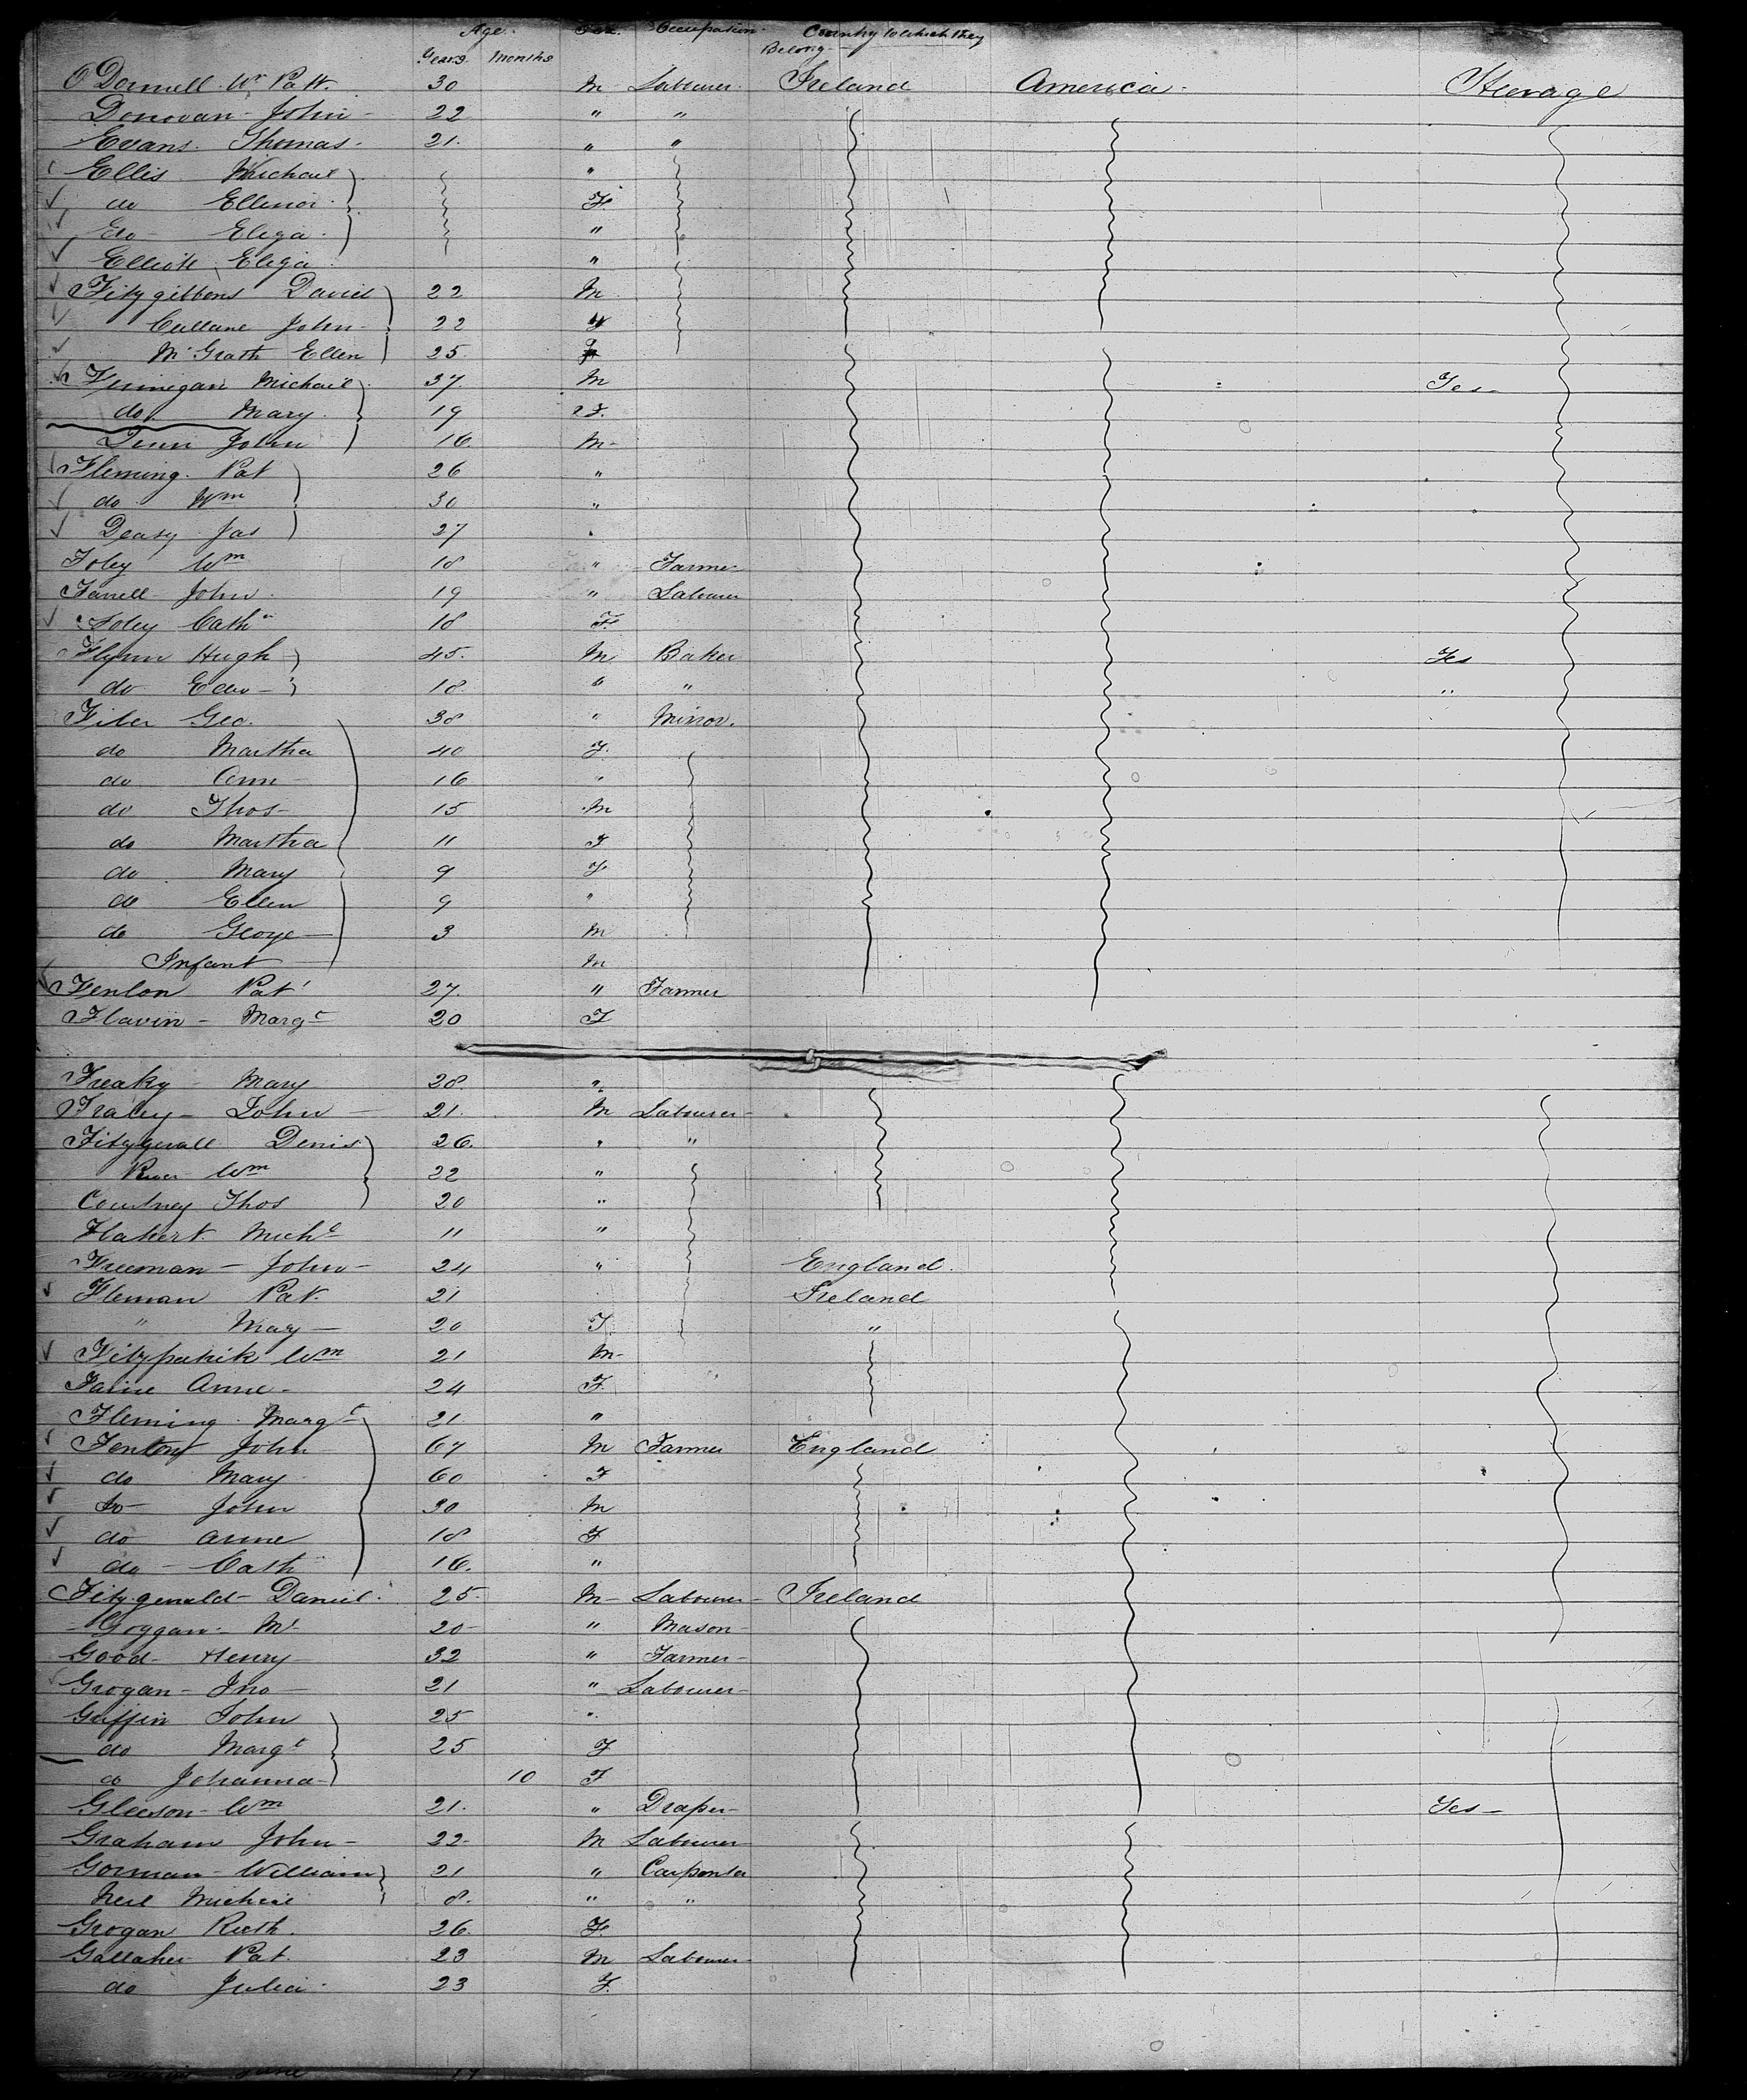 Age. Sex. Occupation. Country to which they
Years Months Belong
O'Donnell Patk. 30 M Labourer. Ireland America Steerage
Donovan John 22 " "
Evans Thomas 21. " "
Ellis Michael "
do Ellenor F.
do Eliza "
Elliott Eliza "
Fitzgibbons David 22 M.
Cullane John 22
McGrath Ellen 25.
Finnegan Michael 37. M Yes
do. Mary. 19 F.
Dunn John 16 M
Fleming. Pat 26 "
do Wm 30 "
Deasy Jas 27 "
Foley Wm 18 " Farmer
Farrell John 19 " Labourer
Foley Cathn 18 F.
Flynn Hugh 45. M Baker Yes
do Edw 18. " " "
Fiber Geo. 38 " Minor.
do Martha 40 F.
do Ann 16 "
do Thos 15 M
do Martha 11 F
do Mary 9 F
do Ellen 9 "
do George 3 M
Infant M
Fenlon Pat 27. " Farmer
Flavin Margt 20 F
Freaky Mary 28. "
Fraley John 21. M Labourer
Fitzgerald Denis 26. " "
Wm 22 "
Courtney Thos 20 "
Flahert Michl 11 "
Freeman John 24 " England.
Fleman Pat. 21 Ireland
" Mary 20 F. "
Fitzpatrik Wm 21 M
Anne 24 F.
Fleming Margt 21. "
Fenton John 67 M Farmer England
do Mary 60 F
do John 30 M
do Anne 18 F
do Cath 16. "
Fitzgerald Daniel 25. M Labourer Ireland
Goggan 20 " Mason
Good Henry 32 " Farmer
Grogan Jno 21 " Labourer
Griffin John 25 "
do Margt 25 F
do Johanna 10 F
Gleeson Wm 21. " Draper Yes
Graham John 22 M Labourer
Gorman William 21 " Carpenter
Neil Michael 8. " "
Grogan Ruth. 26. F.
Gallaher Pat. 23 M Labourer
do Julia 23 F.